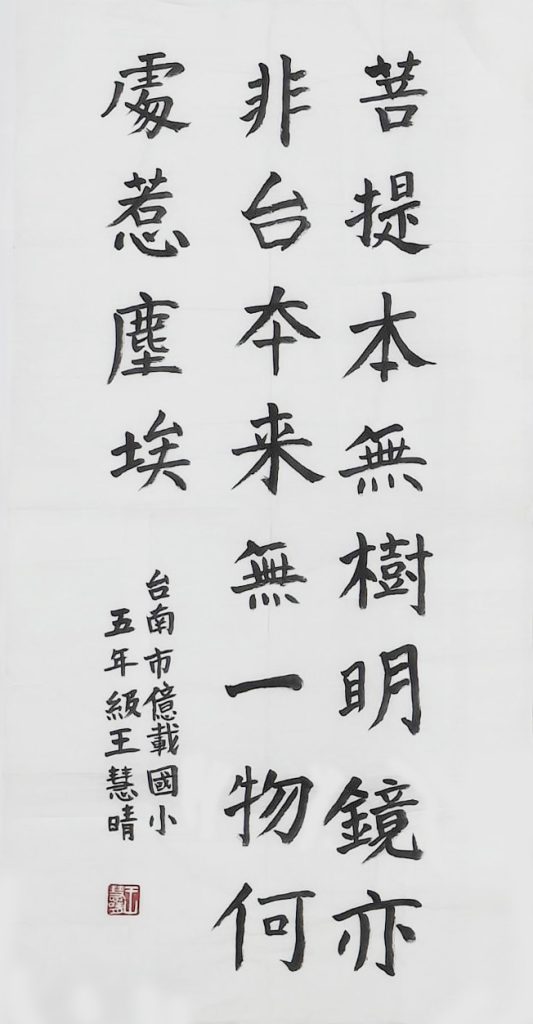 菩提本無樹明鏡亦
非台本来無一物何
處惹塵埃
台南市億載國小
五年級王慧晴